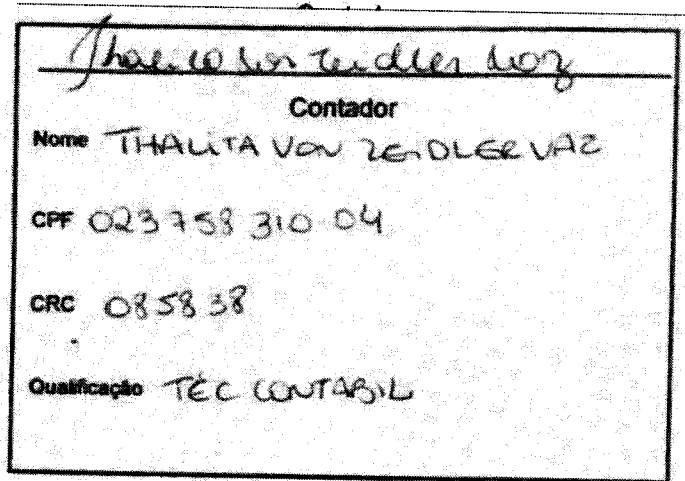 Thalita von Zeidler Vaz
Contador
Nome THALITA VON ZEIDLER VAZ
CPF 023 758 310 04
CRC 085838
Qualificação TÉC CONTABIL